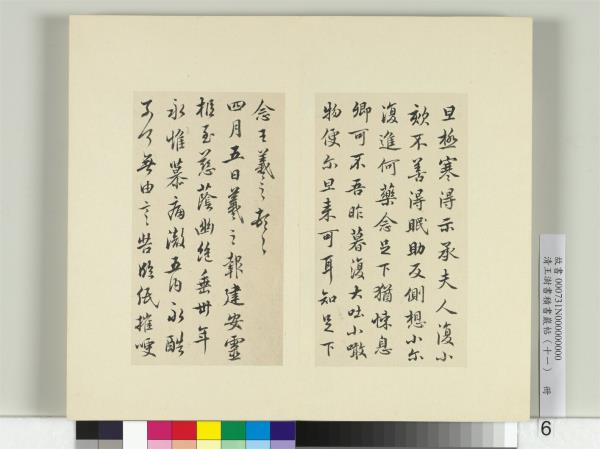 旦極寒得示承夫人復小
欬不善得眠助反側想小尔
復進何藥念足下猶悚息
卿可不吾昨暮復大吐小噉
物便尔旦來可耳知足下
念王羲之頓
四月五日羲之報建安靈
柩至慈蔭幽絕垂卅年
永惟慕痛徹五內永酷
奈何無由言告臨紙摧哽
故書000731N000000000
清王澍書積書巖帖（十一） 冊
6